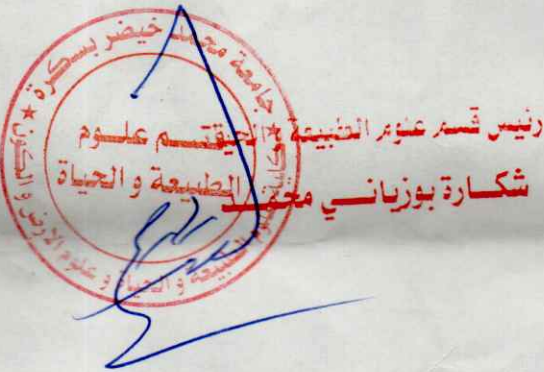 جامعة محمد خيضر بسكرة
كلية علوم الطبيعة و الحياة و علوم الارض و الكون
قسم علوم
الطبيعة و الحياة
رئيس قسم علوم الطبيعة و الحياة
شكارة بوزياني محمد